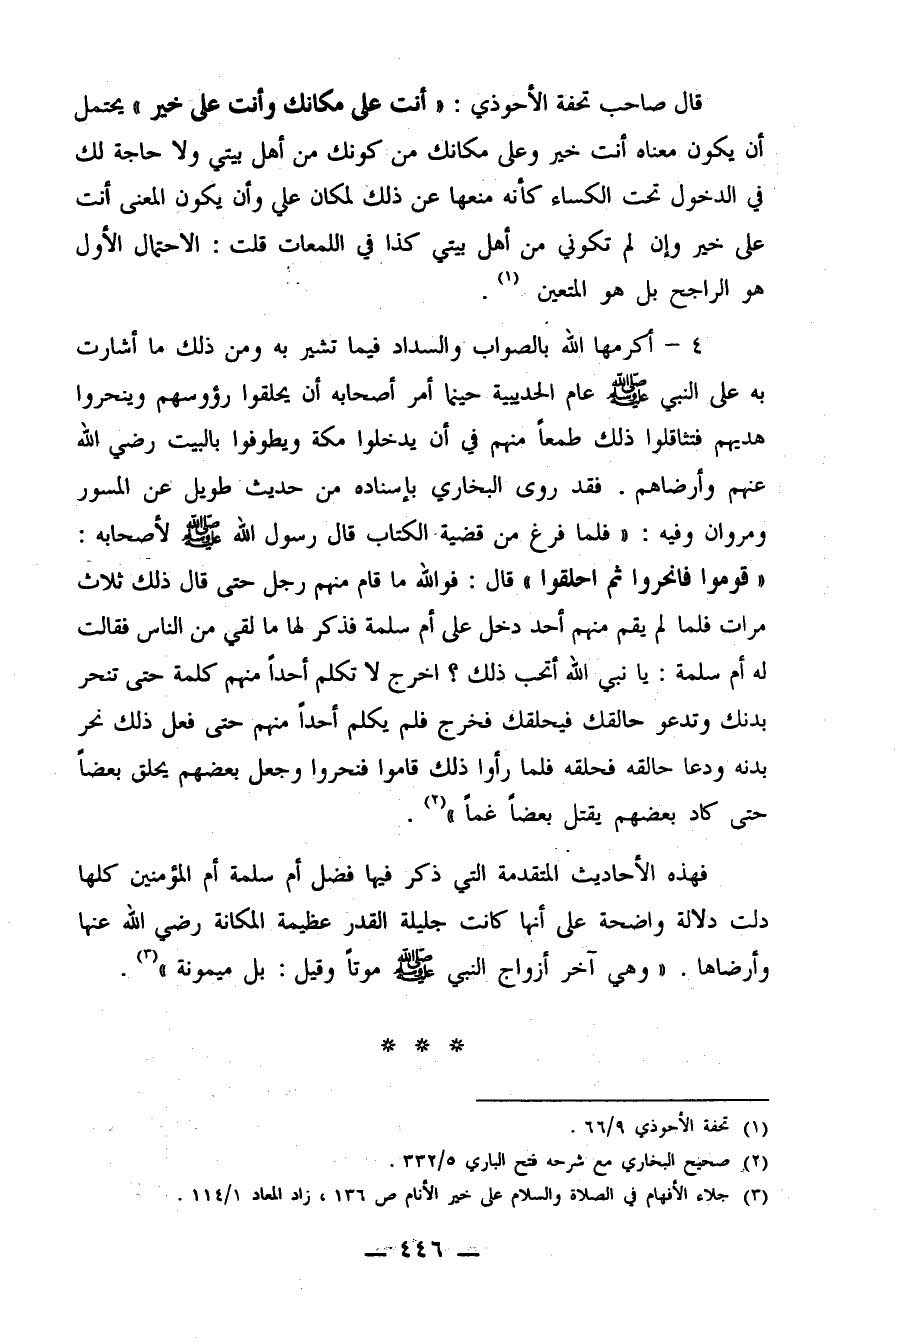 قال صاحب تحفة الأحوذي : « أنت على مكانك وأنت على خير » يحتمل
أن يكون معناه أنت خير وعلى مكانك من كونك من أهل بيتي ولا حاجة لك
في الدخول تحت الكساء كأنه منعها عن ذلك لمكان علي وأن يكون المعنى أنت
على خير وإن لم تكوني من أهل بيتي كذا في اللمعات قلت : الاحتمال الأول
هو الراجح بل هو المتعين (١) .
٤ – أكرمها الله بالصواب والسداد فيما تشير به ومن ذلك ما أشارت
به على النبي ﷺ عام الحديبية حينما أمر أصحابه أن يحلقوا رؤوسهم وينحروا
هديهم فتثاقلوا ذلك طمعاً منهم في أن يدخلوا مكة ويطوفوا بالبيت رضي الله
عنهم وأرضاهم . فقد روى البخاري بإسناده من حديث طويل عن المسور
ومروان وفيه : « فلما فرغ من قضية الكتاب قال رسول الله ﷺ لأصحابه :
« قوموا فانحروا ثم احلقوا » قال : فوالله ما قام منهم رجل حتى قال ذلك ثلاث
مرات فلما لم يقم منهم أحد دخل على أم سلمة فذكر لها ما لقي من الناس فقالت
له أم سلمة : يا نبي الله أتحب ذلك ؟ اخرج لا تكلم أحداً منهم كلمة حتى تنحر
بدنك وتدعو حالقك فيحلقك فخرج فلم يكلم أحداً منهم حتى فعل ذلك نحر
بدنه ودعا حالقه فحلقه فلما رأوا ذلك قاموا فنحروا وجعل بعضهم يحلق بعضاً
حتى كاد بعضهم يقتل بعضاً غماً »(٢) .
فهذه الأحاديث المتقدمة التي ذكر فيها فضل أم سلمة أم المؤمنين كلها
دلت دلالة واضحة على أنها كانت جليلة القدر عظيمة المكانة رضي الله عنها
وأرضاها . « وهي آخر أزواج النبي ﷺ موتاً وقيل : بل ميمونة »(٣) .
* * *
(١) تحفة الأحوذي ٦٦/٩ .
(٢) صحيح البخاري مع شرحه فتح الباري ٣٣٢/٥ .
(٣) جلاء الأفهام في الصلاة والسلام على خير الأنام ص ١٣٦ ، زاد المعاد ١١٤/١ .
— ٤٤٦ —